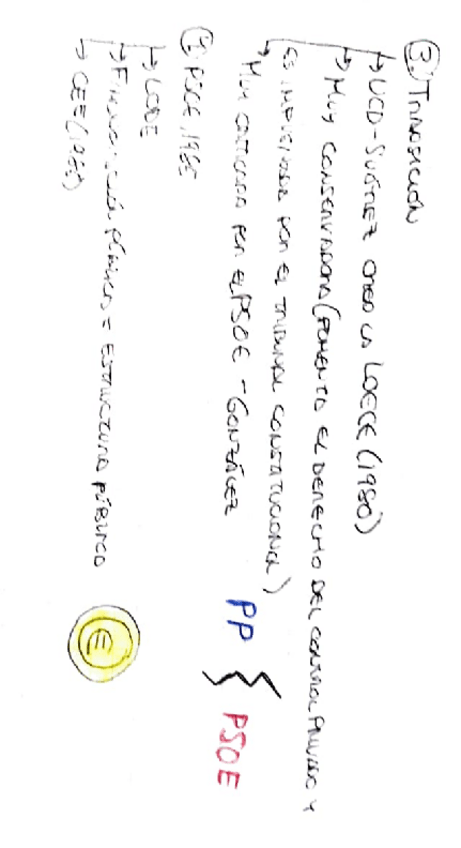 ③ TRANSICIÓN
→ UCD - SUÁREZ CREA LA LOECE (1980)
→ MUY CONSERVADORA (FOMENTA EL DERECHO DEL CONTROL PRIVADO Y
ES IMPUGNADA POR EL TRIBUNAL CONSTITUCIONAL)
→ MUY CRITICADA POR EL PSOE - GONZÁLEZ
PP PSOE
④ PSOE, 1985
→ LODE
→ FINANCIACIÓN PÚBLICA = ESTRUCTURA PÚBLICA
→ CEE
€